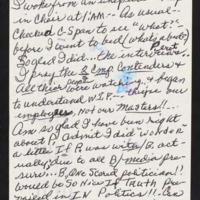 I woke from an unplanned
in Chair at 1:AM – As usual
Checked C-Span to see "What?"
before I went to bed (what's a bed?)
So glad I did... the interview
I pray the 8 Comp Contenders &
All their were watching & began
to understand W.I.P. – things our
employees Not our Masters!!
Am so glad I have been right
about P. Admit I did "wonder"
a little if P. was witty B. act-
ually due to all D/media pres-
sure... B, One Scared politician!!
would be So Nice if Truth Pre-
vailed in I.N Politics!!! An